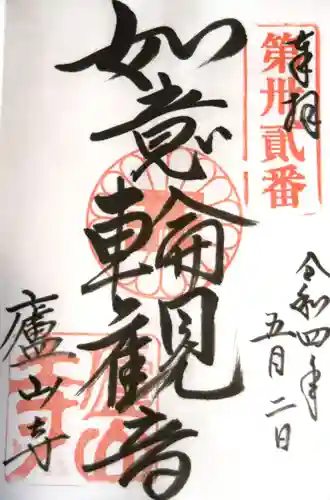 奉拝
第卅貳番
令和四年
五月二日
如意輪観音
廬山寺